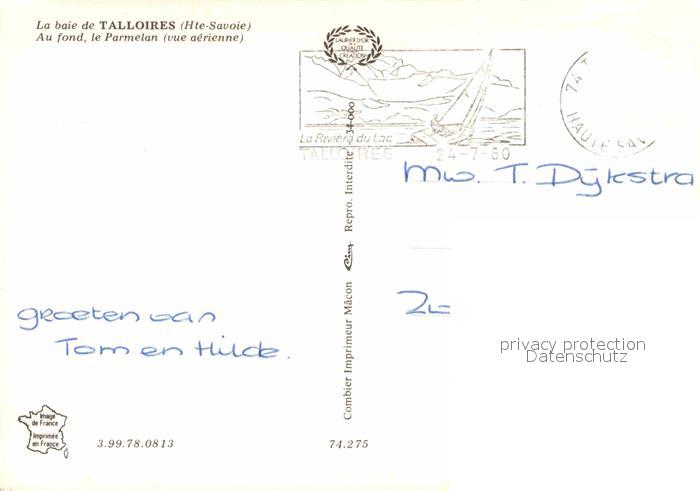 La baie de TALLOIRES (Hte-Savoie)
Au fond, le Parmelan (vue aérienne)
LAURIER D'OR
QUALITÉ
CRÉATION
La Riviera du Lac
TALLOIRES 24-7-80
74
HAUTE SAV
Mw. T. Dijkstra
groeten van
Tom en Hilde.
privacy protection
Datenschutz
Combier Imprimeur Mâcon Cim Repro. Interdite 34-000
Image
de France
Imprimée
en France
3.99.78.0813
74.275